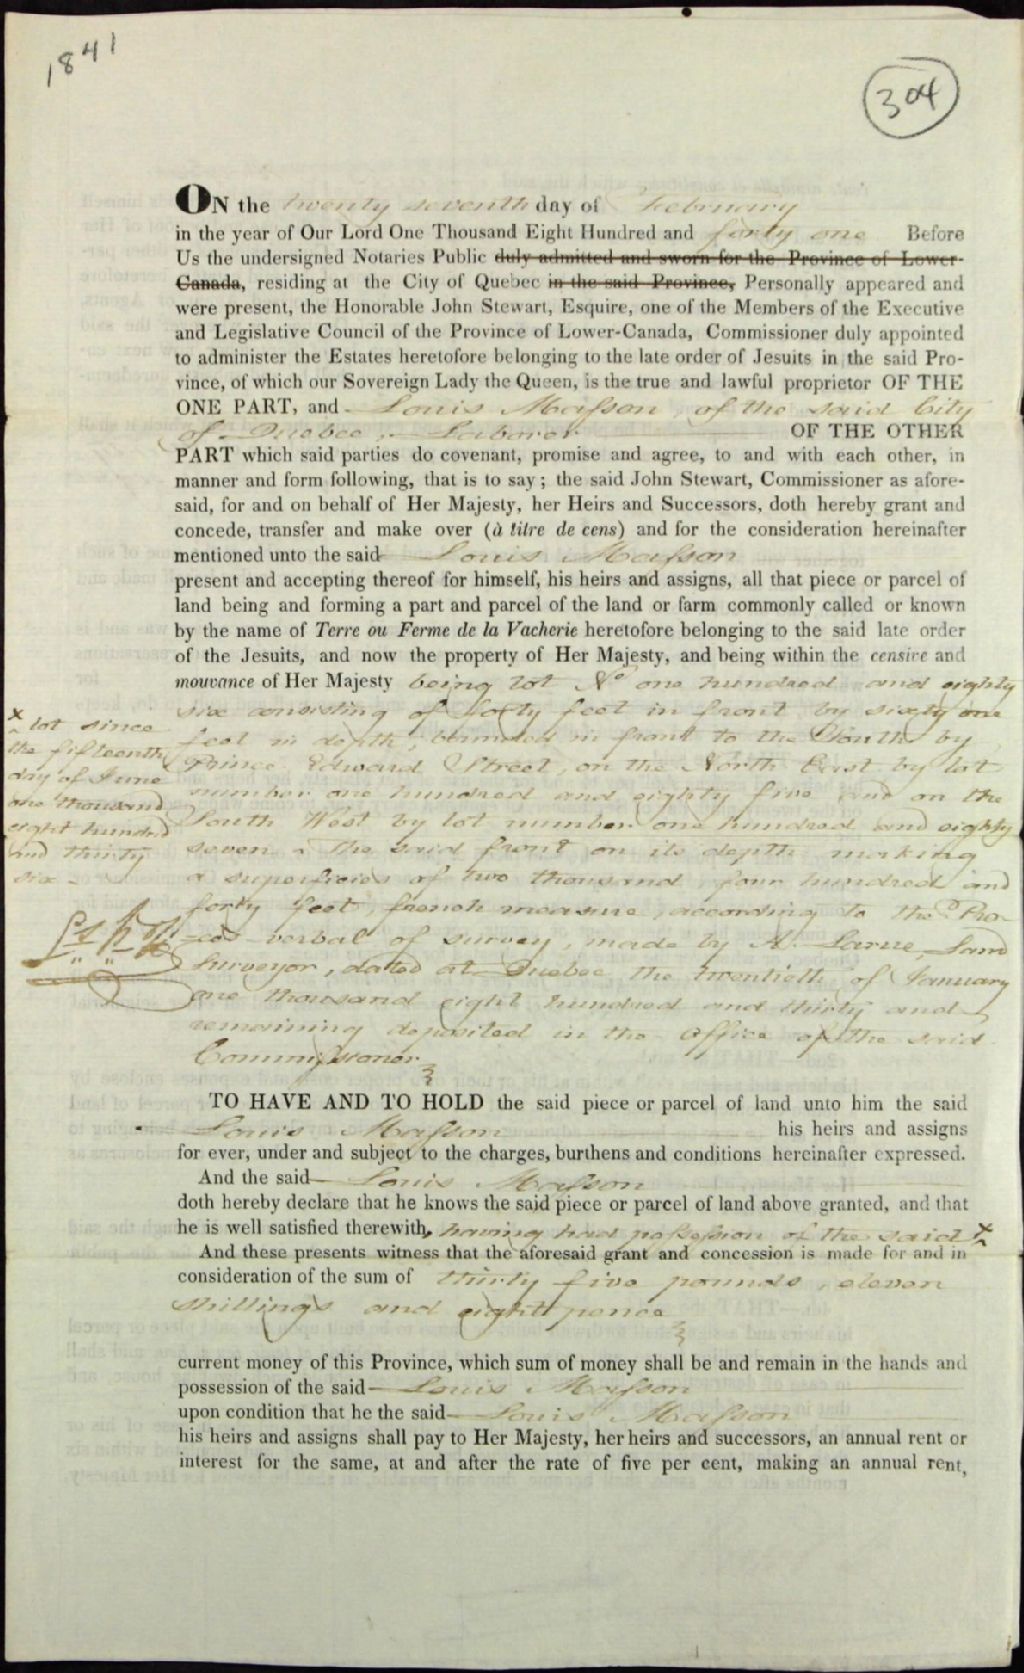 1841
304
ON the twenty seventh day of February
in the year of Our Lord One Thousand Eight Hundred and forty one Before
Us the undersigned Notaries Public duly admitted and sworn for the Province of Lower-
Canada, residing at the City of Quebec in the said Province, Personally appeared and
were present, the Honorable John Stewart, Esquire, one of the Members of the Executive
and Legislative Council of the Province of Lower-Canada, Commissioner duly appointed
to administer the Estates heretofore belonging to the late order of Jesuits in the said Pro-
vince, of which our Sovereign Lady the Queen, is the true and lawful proprietor OF THE
ONE PART, and Louis Masson, of the said City
of Quebec, Laborer OF THE OTHER
PART which said parties do covenant, promise and agree, to and with each other, in
manner and form following, that is to say; the said John Stewart, Commissioner as afore-
said, for and on behalf of Her Majesty, her Heirs and Successors, doth hereby grant and
concede, transfer and make over (à titre de cens) and for the consideration hereinafter
mentioned unto the said Louis Masson
present and accepting thereof for himself, his heirs and assigns, all that piece or parcel of
land being and forming a part and parcel of the land or farm commonly called or known
by the name of Terre ou Ferme de la Vacherie heretofore belonging to the said late order
of the Jesuits, and now the property of Her Majesty, and being within the censive and
mouvance of Her Majesty being lot No one hundred and eighty
six consisting of forty feet in front by sixty one
feet in depth, bounded in front to the South by
Prince Edward Street, on the North East by lot
number one hundred and eighty five and on the
South West by lot number one hundred and eighty
seven, the said front on its depth making
a superficies of two thousand four hundred and
forty feet, french measure, according to the Pro-
cès-verbal of survey, made by A. Larue, Land
Surveyor, dated at Quebec the twentieth of January
one thousand eight hundred and thirty and
remaining deposited in the Office of the said
Commissioner
x lot since
the fifteenth
day of June
one thousand
eight hundred
and thirty
six
TO HAVE AND TO HOLD the said piece or parcel of land unto him the said
Louis Masson his heirs and assigns
for ever, under and subject to the charges, burthens and conditions hereinafter expressed.
And the said Louis Masson
doth hereby declare that he knows the said piece or parcel of land above granted, and that
he is well satisfied therewith, having had possession of the said x
And these presents witness that the aforesaid grant and concession is made for and in
consideration of the sum of thirty five pounds, eleven
shillings and eight pence
current money of this Province, which sum of money shall be and remain in the hands and
possession of the said Louis Masson
upon condition that he the said Louis Masson
his heirs and assigns shall pay to Her Majesty, her heirs and successors, an annual rent or
interest for the same, at and after the rate of five per cent, making an annual rent,